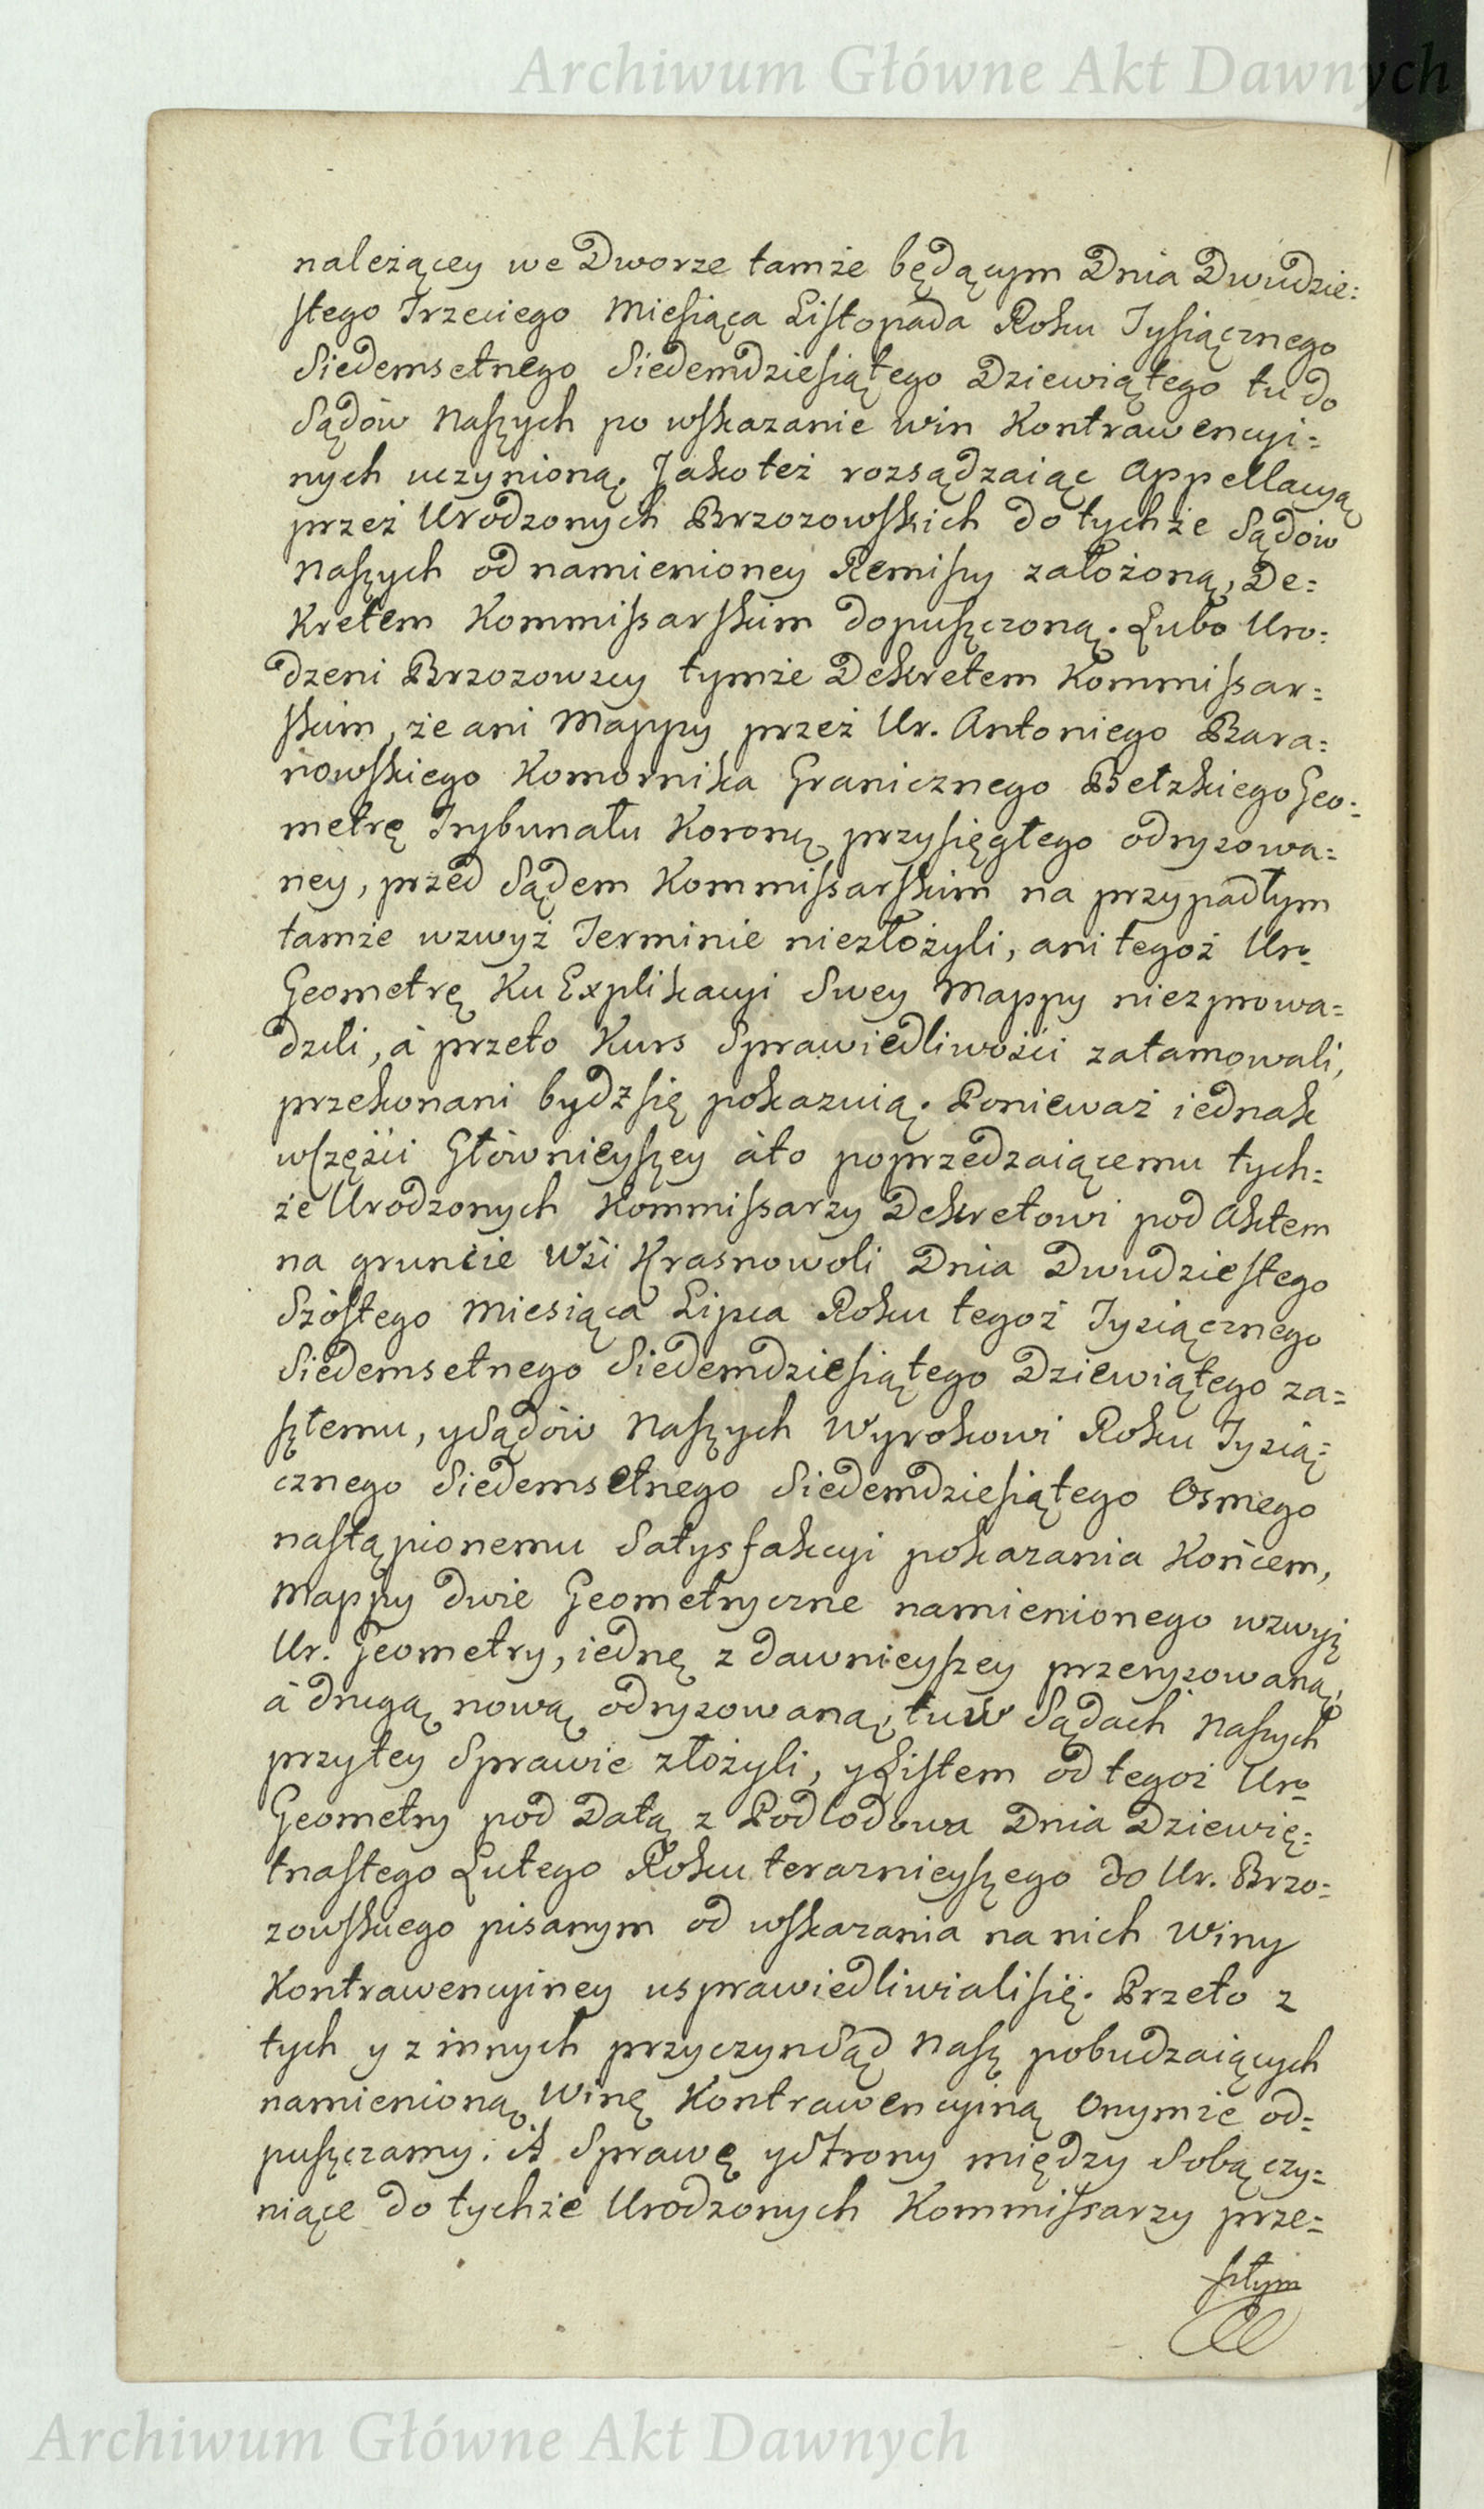 Archiwum Główne Akt Dawnych
należącey we Dworze tamże będącym Dnia Dwudzie:
stego Trzeciego Miesiąca Listopada Roku Tysiącznego
Siedemsetnego Siedemdziesiątego Dziewiątego tu do
Sądów Naszych po wskazanie win Kontrawencyi=
nych uczynioną. Jako też rozsądzaiąc Appellacyą
przez Urodzonych Brzozowskich do tychże Sądów
Naszych od namienioney Remissy założoną, De=
kretem Kommissarskim dopuszczoną. Lubo Uro=
dzeni Brzozowscy tymże Dekretem Kommissar=
skim, że ani Mappy przez Ur. Antoniego Bara=
nowskiego Komornika Granicznego Bełzkiego Geo=
metrę Trybunału Koron. przysięgłego odrysowa=
ney, przed Sądem Kommissarskim na przypadłym
tamże wzwyż Terminie niezłożyli, ani tegoż Uro.
Geometrę Ku Explikacyi Swey Mappy niezprowa=
dzili, à przeto Kurs Sprawiedliwości zatamowali,
przekonani bydź się pokazuią. Ponieważ iednak
wczęści Głównieyszey àto poprzedzaiącemu tych=
że Urodzonych Kommissarzy Dekretowi pod Aktem
na gruncie Wsi Krasnowoli Dnia Dwudziestego
Szóstego Miesiąca Lipca Roku tegoż Tysiącznego
Siedemsetnego Siedemdziesiątego Dziewiątego za=
szłemu, y Sądów Naszych Wyrokowi Roku Tysią=
cznego Siedemsetnego Siedemdziesiątego Osmego
nastąpionemu Satysfakcyi pokazania Końcem,
Mappy dwie Geometryczne namienionego wzwyż
Ur. Geometry, iednę z dawnieyszey przerysowaną,
à drugą nową odrysowaną, tu w Sądach Naszych
przytey Sprawie złożyli, y Listem od tegoż Uro.
Geometry pod Datą z Podlodowa Dnia Dziewię=
tnastego Lutego Roku teraznieyszego do Ur. Brzo=
zowskiego pisanym od wskazania na nich Winy
Kontrawencyiney usprawiedliwiali się. Przeto z
tych y z innych przyczyn Sąd Nasz pobudzaiących
namienioną Winę Kontrawencyiną Onymże od=
puszczamy. A Sprawę y Strony między Sobą czy=
niące do tychże Urodzonych Kommissarzy prze=
szłym
Archiwum Główne Akt Dawnych